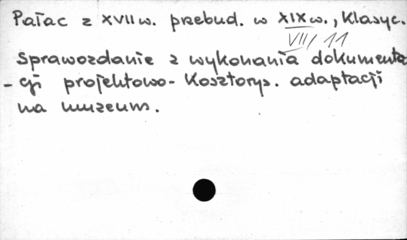 Pałac z XVII w. przebud. w XIX w., klasyc.
VIII/11
Sprawozdanie z wykonania dokumenta
-cji projektowo-kosztorys. adaptacji
na muzeum.